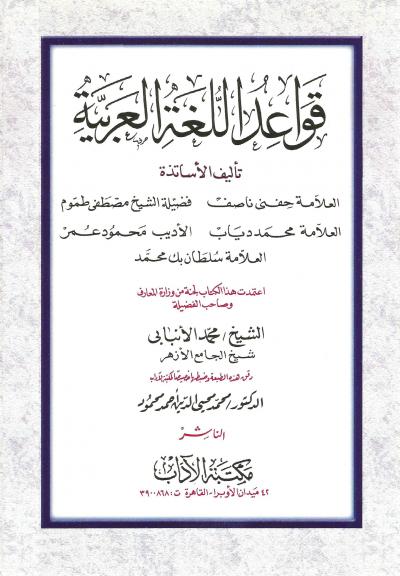 قواعد اللغة العربية
تأليف الأساتذة
العلامة حفنى ناصف فضيلة الشيخ مصطفى طموم
العلامة محمد دياب الأديب محمود عمر
العلامة سلطان بك محمد
اعتمدت هذا الكتاب لجنة من وزارة المعارف
وصاحب الفضيلة
الشيخ/ محمد الأنبابى
شيخ الجامع الأزهر
هذه الطبعة وضبطها
الدكتور/ محمد محيى الدين أحمد محمود
الناشر
مكتبة الآداب
٤٢ ميدان الأوبرا - القاهرة ت: ٣٩٠٠٨٦٨